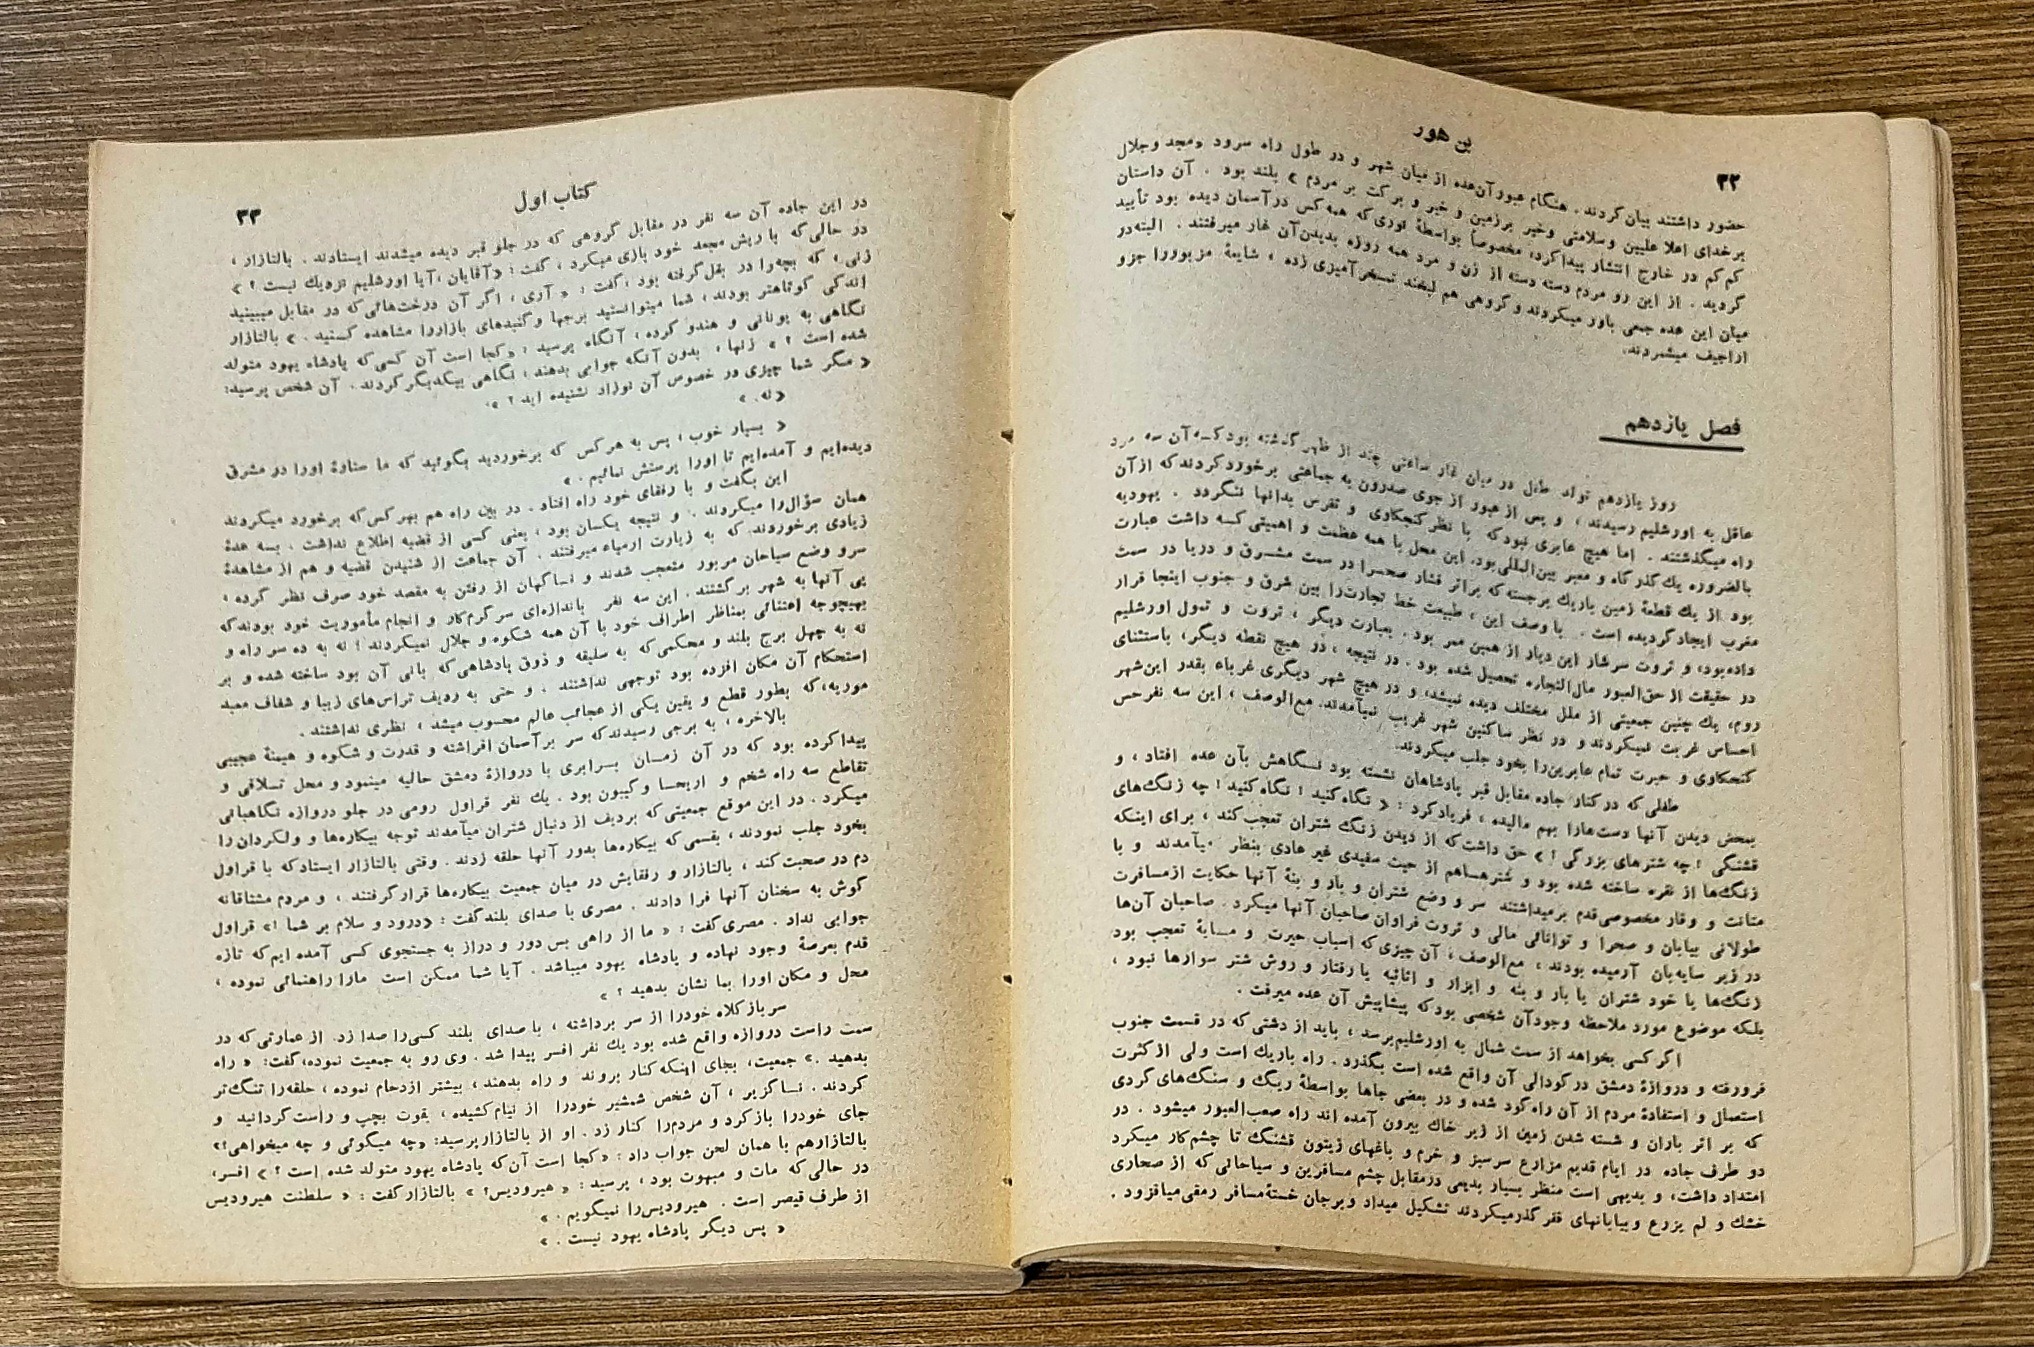 ۳۲
بن هور
حضور داشتند بیان کردند. هنگام عبور آن‌عده از میان شهر و در طول راه سرود «مجد وجلال
برخدای اعلا علیین وسلامتی وخیر برزمین و خیر و برکت بر مردم» بلند بود. آن داستان
کم کم در خارج انتشار پیدا کرد، مخصوصاً بواسطهٔ نوری که همه کس در آسمان دیده بود تأیید
گردید. از این رو مردم دسته دسته از زن و مرد همه روزه بدیدن آن غار میرفتند. البته در
میان این عده جمعی باور میکردند و گروهی هم لبخند تمسخر آمیزی زده، شایعهٔ مزبوررا جزو
اراجیف میشمردند.
فصل یازدهم
روز یازدهم تولد طفل در میان غار ساعتی چند از ظهر گذشته بود که آن سه مرد
عاقل به اورشلیم رسیدند، و پس از عبور از جوی صدرون به جماعتی برخورد کردند که از آن
راه میگذشتند. اما هیچ عابری نبود که با نظر کنجکاوی و تفرس بدانها ننگردد. یهودیه
بالضروره یك گذرگاه و معبر بین‌المللی بود. این محل با همه عظمت و اهمیتی کسه داشت عبارت
بود از یك قطعهٔ زمین باریك برجسته که براثر فشار صحرا در سمت مشرق و دریا در سمت
مغرب ایجاد گردیده است. با وصف این، طبیعت خط تجارت‌را بین شرق و جنوب اینجا قرار
داده‌بود، و ثروت سرشار این دیار از همین ممر بود. بعبارت دیگر، ثروت و تمول اورشلیم
در حقیقت از حق‌العبور مال‌التجاره تحصیل شده بود. در نتیجه، در هیچ نقطه دیگر، باستثنای
روم، یك چنین جمعیتی از ملل مختلف دیده نمیشد، و در هیچ شهر دیگری غرباء بقدر این‌شهر
احساس غربت نمیکردند و در نظر ساکنین شهر غریب نمیآمدند. مع‌الوصف، این سه نفر حس
کنجکاوی و حیرت تمام عابرین‌را بخود جلب میکردند.
طفلی که در کنار جاده مقابل قبر پادشاهان نشسته بود نسگاهش بآن عده افتاد، و
بمحض دیدن آنها دست‌هارا بهم مالیده، فریاد کرد: «نگاه کنید! نگاه کنید! چه زنگ‌های
قشنگی! چه شترهای بزرگی!» حق داشت که از دیدن زنگ شتران تعجب کند، برای اینکه
زنگ‌ها از نقره ساخته شده بود و شترهساهم از حیث سفیدی غیر عادی بنظر میآمدند و با
متانت و وقار مخصوصی قدم برمیداشتند سر و وضع شتران و بار و بنهٔ آنها حکایت ازمسافرت
طولانی بیابان و صحرا و توانائی مالی و ثروت فراوان صاحبان آنها میکرد. صاحبان آن‌ها
در زیر سایه‌بان آرمیده بودند، مع‌الوصف، آن چیزی که اسباب حیرت و مسایهٔ تعجب بود
زنگ‌ها یا خود شتران یا بار و بنه و ابزار و اثاثیه یا رفتار و روش شتر سوارها نبود،
بلکه موضوع مورد ملاحظه وجود آن شخصی بود که پیشاپیش آن عده میرفت.
اگر کسی بخواهد از سمت شمال به اورشلیم برسد، باید از دشتی که در قسمت جنوب
فرورفته و دروازهٔ دمشق در گودالی آن واقع شده است بگذرد. راه باریك است ولی از کثرت
استعمال و استفادهٔ مردم از آن راه گود شده و در بعضی جاها بواسطهٔ ریگ و سنگ‌های گردی
که بر اثر باران و شسته شدن زمین از زیر خاك بیرون آمده اند راه صعب‌العبور میشود. در
دو طرف جاده در ایام قدیم مزارع سرسبز و خرم و باغهای زیتون قشنگ تا چشم کار میکرد
امتداد داشت، و بدیهی است منظر بسیار بدیعی در مقابل چشم مسافرین و سیاحانی که از صحاری
خشك و لم یزرع و بیابانهای قفر گذر میکردند تشکیل میداد و برجان خستهٔ مسافر رمقی میافزود.
کتاب اول
۳۳
در این جاده آن سه نفر در مقابل گروهی که در جلو قبر دیده میشدند ایستادند. بالتازار،
در حالی‌که با ریش مجعد خود بازی میکرد، گفت: «آقایان، آیا اورشلیم نزدیك نیست؟»
زنی، که بچه‌را در بغل گرفته بود، گفت: «آری، اگر آن درخت‌هائی که در مقابل میبینید
اندکی کوتاهتر بودند، شما میتوانستید برجها و گنبدهای بازاررا مشاهده کسنید.» بالتازار
نگاهی به یونانی و هندو کرده، آنگاه پرسید: «کجا است آن کسی که پادشاه یهود متولد
شده است؟» زنها، بدون آنکه جوابی بدهند، نگاهی بیکدیگر کردند. آن شخص پرسید:
«مگر شما چیزی در خصوص آن نوزاد نشنیده اید؟»
«نه.»
«بسیار خوب، پس به هر کس که برخوردید بگوئید که ما ستارهٔ اورا در مشرق
دیده‌ایم و آمده‌ایم تا اورا پرستش نمائیم.»
این بگفت و با رفقای خود راه افتاد. در بین راه هم بهر کس که برخورد میکردند
همان سؤال‌را میکردند. و نتیجه یکسان بود، یعنی کسی از قضیه اطلاع نداشت. بسه عدهٔ
زیادی برخوردند که به زیارت ارمیاء میرفتند. آن جماعت از شنیدن قضیه و هم از مشاهدهٔ
سرو وضع سیاحان مزبور متعجب شدند و نساگهان از رفتن به مقصد خود صرف نظر کرده،
پی آنها به شهر برگشتند. این سه نفر باندازه‌ای سرگرم‌کار و انجام مأموریت خود بودند که
بهیچوجه اعتنائی بمناظر اطراف خود با آن همه شکوه و جلال نمیکردند؛ نه به ده سر راه و
نه به چهل برج بلند و محکمی که به سلیقه و ذوق پادشاهی‌که بانی آن بود ساخته شده و بر
استحکام آن مکان افزده بود توجهی نداشتند. و حتی به ردیف تراس‌های زیبا و شفاف معبد
موریه، که بطور قطع و یقین یکی از عجائب عالم محسوب میشد، نظری نداشتند.
بالاخره، به برجی رسیدند که سر برآسمان افراشته و قدرت و شکوه و هیمنهٔ عجیبی
پیدا کرده بود که در آن زمسان بسرابری با دروازهٔ دمشق حالیه مینمود و محل تسلاقی و
تقاطع سه راه شخم و اریحسا و کیبون بود. یك نفر قراول رومی در جلو دروازه نگاهبانی
میکرد. در این موقع جمعیتی‌که بردیف از دنبال شتران میآمدند توجه بیکاره‌ها و ولگردان‌را
بخود جلب نمودند، بقسمی که بیکاره‌ها بدور آنها حلقه زدند. وقتی بالتازار ایستاد که با قراول
دم در صحبت کند، بالتازار و رفقایش در میان جمعیت بیکاره‌ها قرار گرفتند، و مردم مشتاقانه
گوش به سخنان آنها فرا دادند. مصری با صدای بلند گفت: «درود و سلام بر شما!» قراول
جوابی نداد. مصری گفت: «ما از راهی بس دور و دراز به جستجوی کسی آمده ایم که تازه
قدم بعرصهٔ وجود نهاده و پادشاه یهود میباشد. آیا شما ممکن است مارا راهنمائی نموده،
محل و مکان اورا بما نشان بدهید؟»
سرباز کلاه خودرا از سر برداشته، با صدای بلند کسی‌را صدا زد. از عمارتی‌که در
سمت راست دروازه واقع شده بود یك نفر افسر پیدا شد. وی رو به جمعیت نموده، گفت: «راه
بدهید.» جمعیت، بجای اینکه کنار بروند و راه بدهند، بیشتر ازدحام نموده، حلقه‌را تنگ‌تر
کردند. نساگزیر، آن شخص شمشیر خودرا از نیام کشیده، بقوت بچپ و راست گردانید و
جای خودرا باز کرد و مردم‌را کنار زد. او از بالتازار پرسید: «چه میگوئی و چه میخواهی؟»
بالتازارهم با همان لحن جواب داد: «کجا است آن که پادشاه یهود متولد شده است؟» افسر،
در حالی که مات و مبهوت بود، پرسید: «هیرودیس؟» بالتازار گفت: «سلطنت هیرودیس
از طرف قیصر است. هیرودیس‌را نمیگویم.»
«پس دیگر پادشاه یهود نیست.»